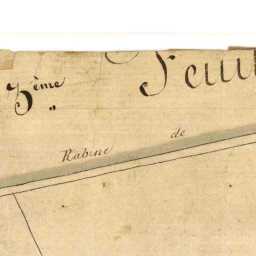 3ème Feuil
Rabine de